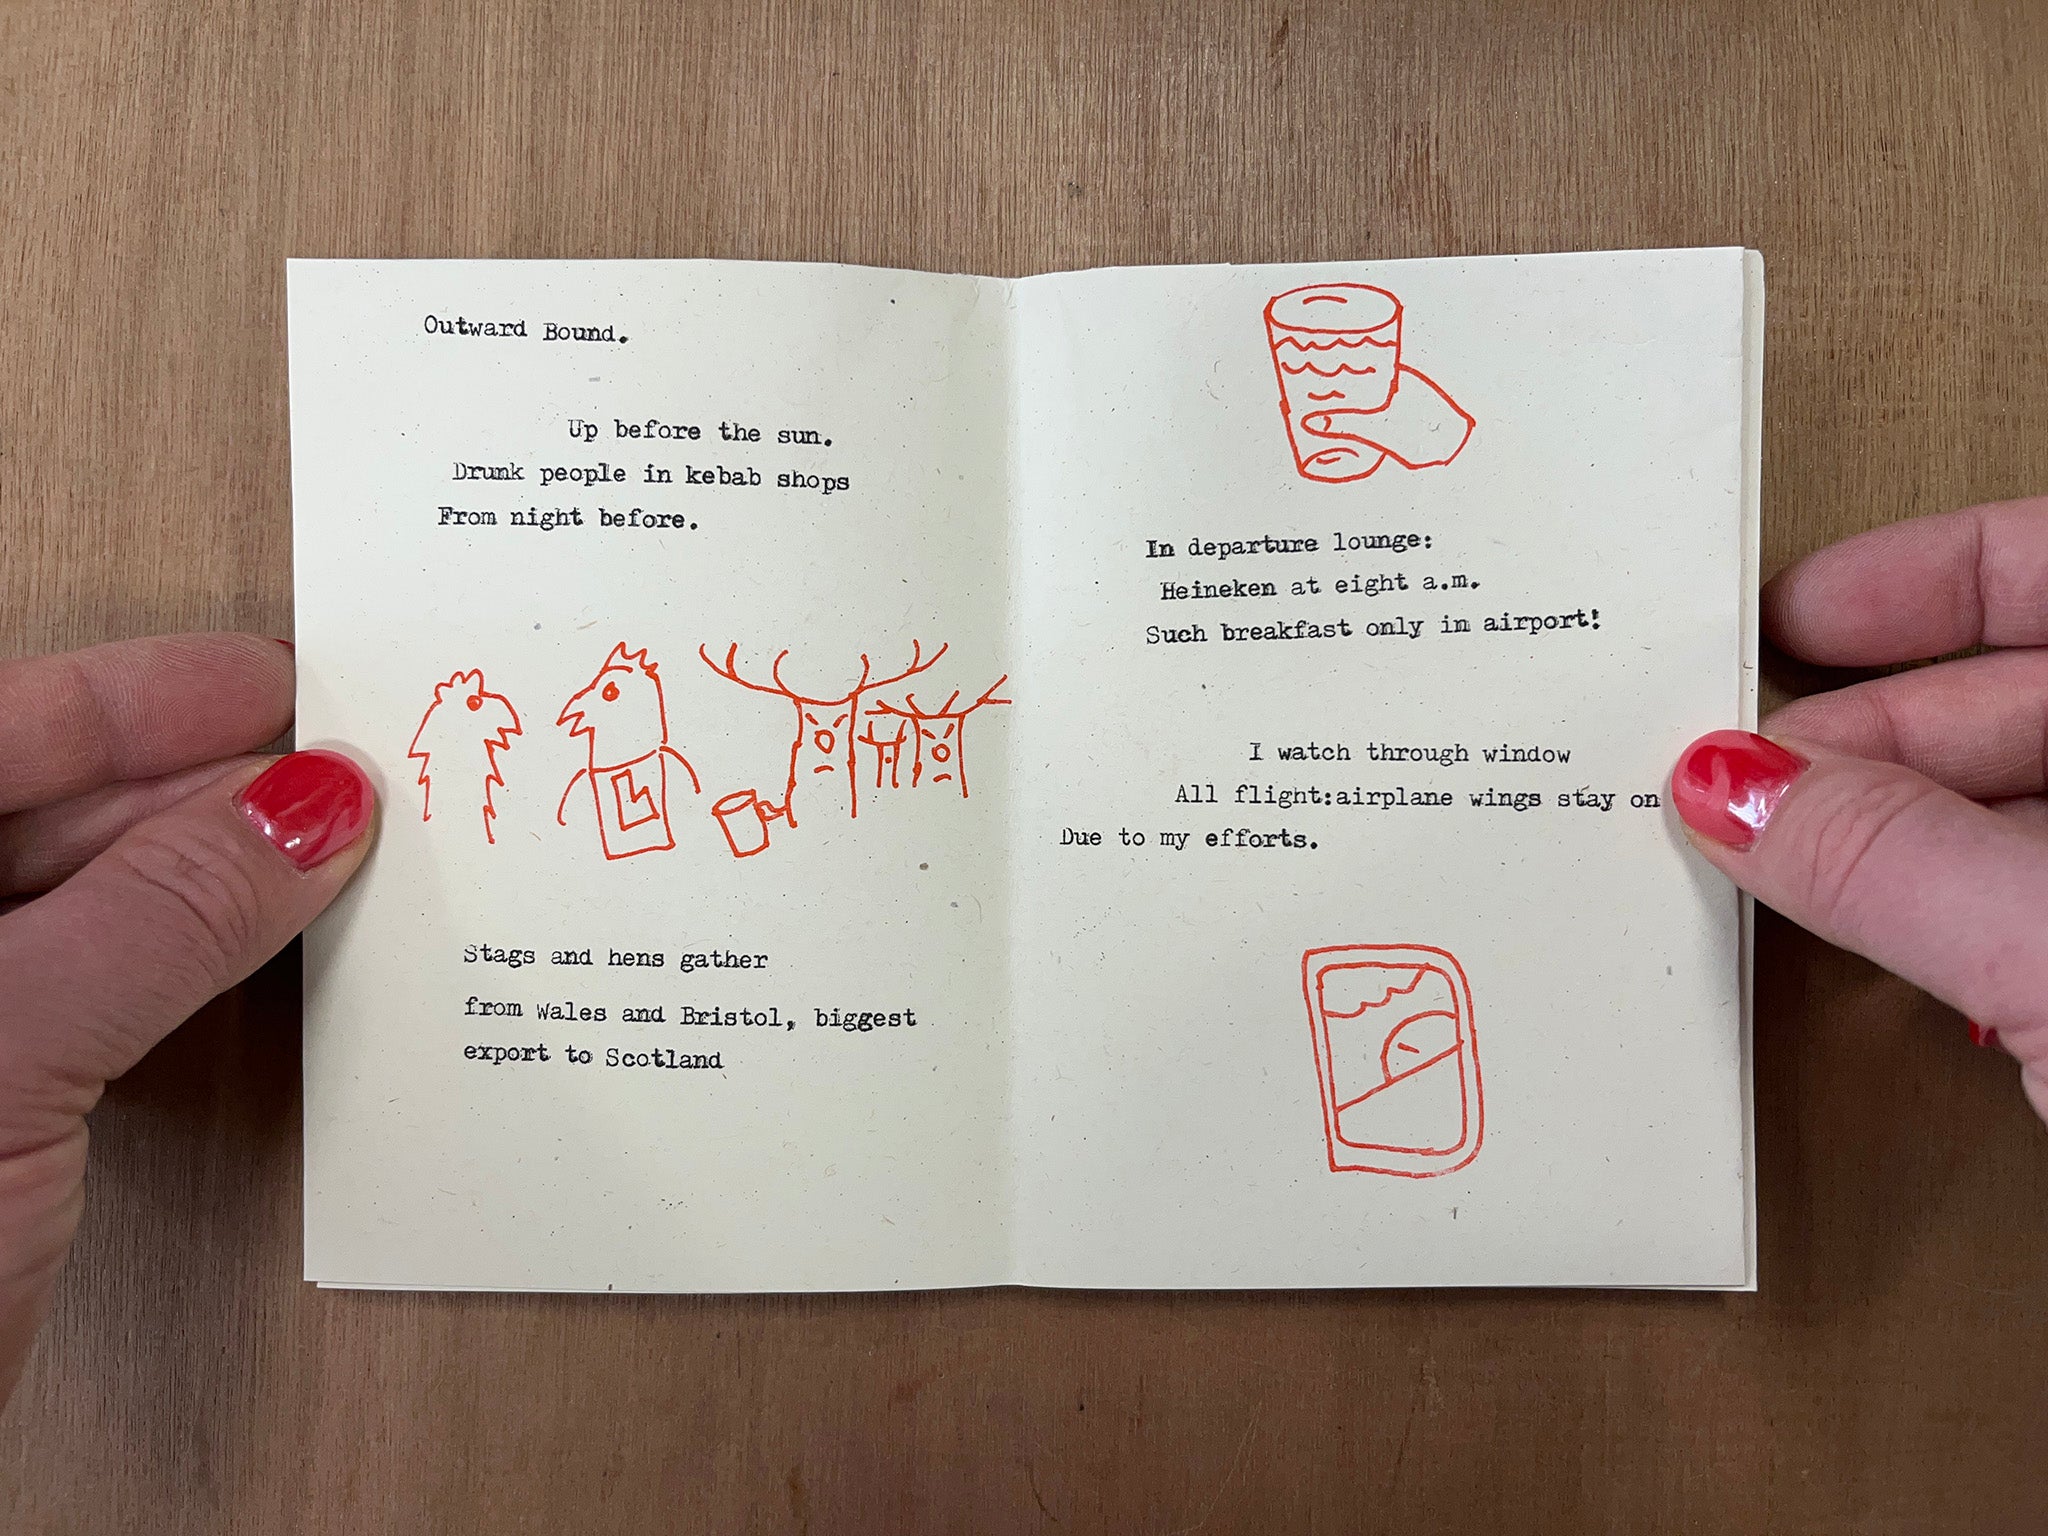 Outward Bound.
Up before the sun.
Drunk people in kebab shops
From night before.
L
Stags and hens gather
from Wales and Bristol, biggest
export to Scotland
In departure lounge:
Heineken at eight a.m.
Such breakfast only in airport!
I watch through window
All flight:airplane wings stay on
Due to my efforts.